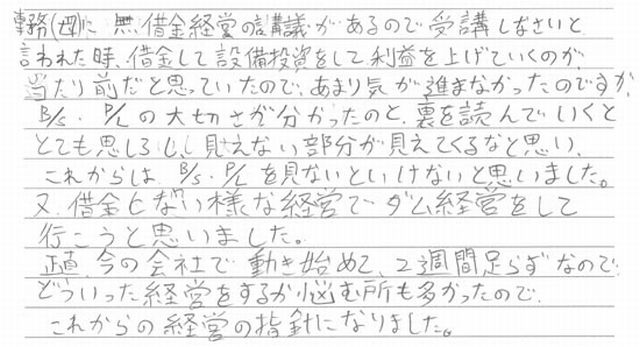 専務(四)に 無借金経営の講議があるので受講しなさいと
言われた時、借金して設備投資をして利益を上げていくのが、
当たり前だと思っていたので、あまり気が進まなかったのですが、
B/S・P/Lの大切さが分かったのと、裏を読んでいくと
とても思しろいし、見えない部分が見えてくるなと思い、
これからは B/S・P/Lを見ないといけないと思いました。
又、借金しない様な経営でダム経営をして
行こうと思いました。
正直、今の会社で動き始めて、2週間足らずなので、
どういった経営をするか悩む所も多かったので、
これからの経営の指針になりました。